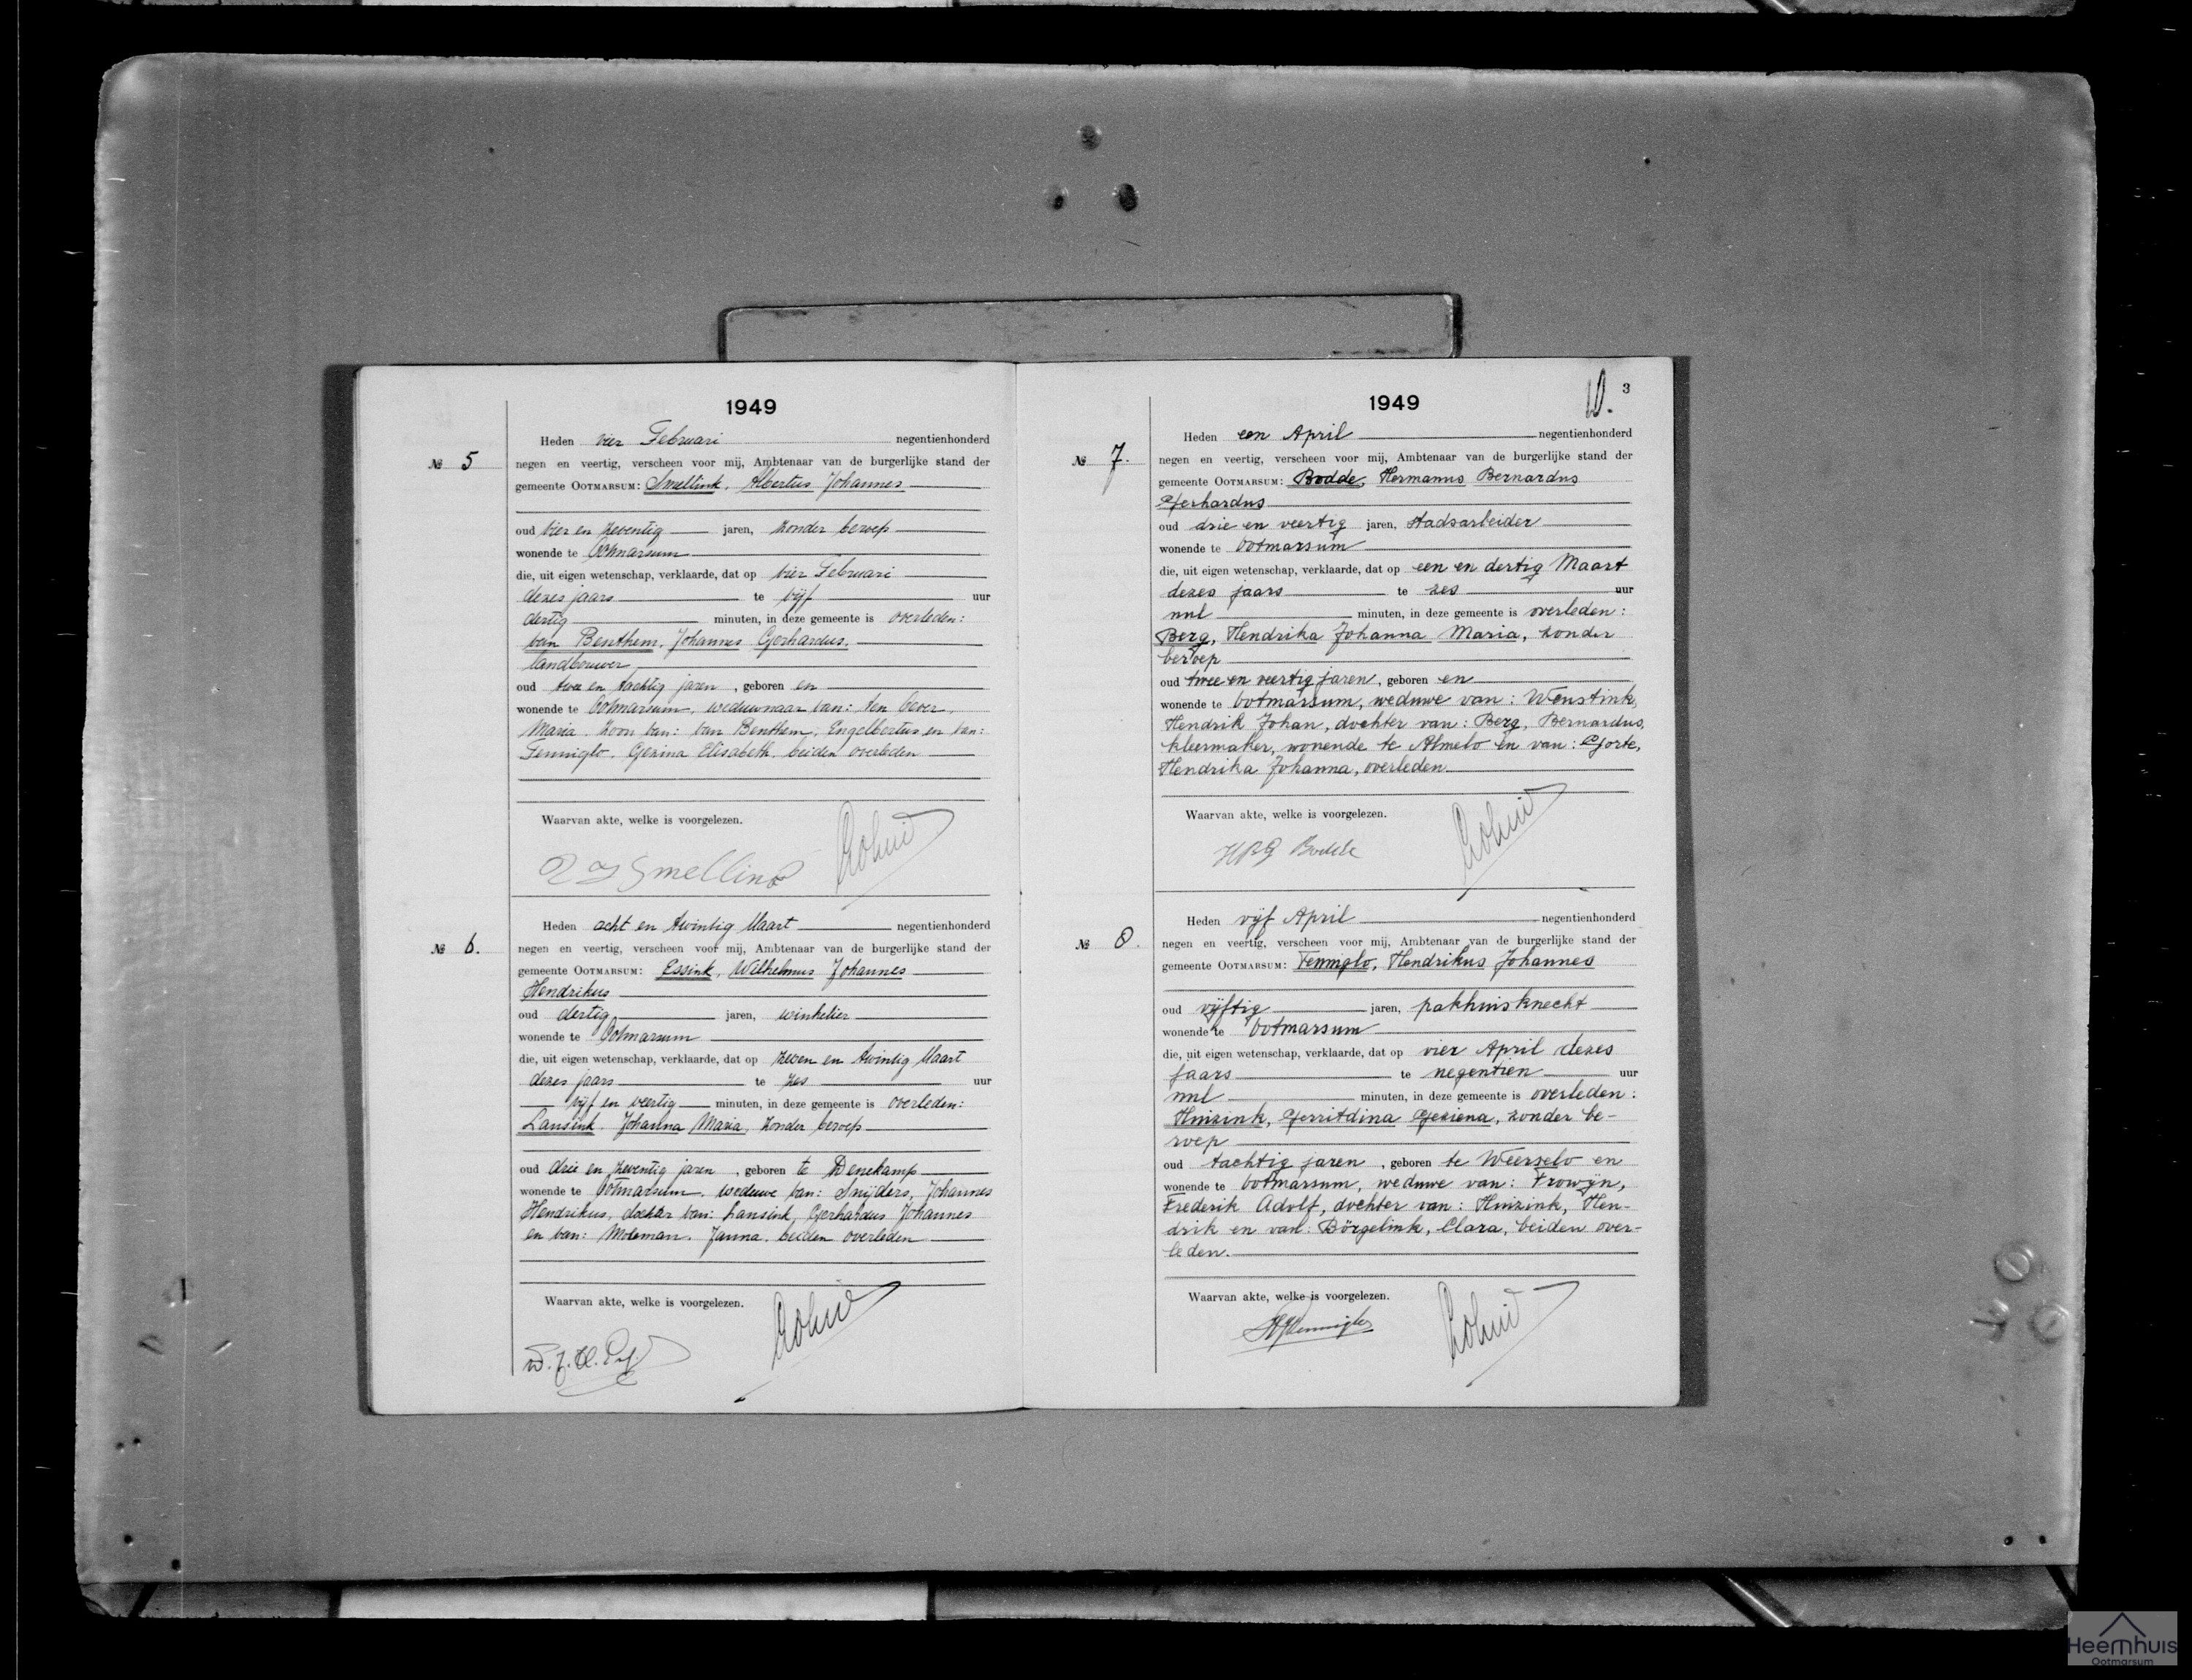 1949
№ 5
Heden vier Februari negentienhonderd
negen en veertig, verscheen voor mij, Ambtenaar van de burgerlijke stand der
gemeente OOTMARSUM: Smellink, Albertus Johannes
oud vier en zeventig jaren, zonder beroep
wonende te Ootmarsum
die, uit eigen wetenschap, verklaarde, dat op vier Februari
dezes jaars te vijf uur
dertig minuten, in deze gemeente is overleden:
van Benthem, Johannes Gerhardus,
landbouwer
oud twee en tachtig jaren, geboren en
wonende te Ootmarsum, weduwnaar van: ten Cever,
Maria. Zoon van: van Benthem, Engelbertus en van:
Tenniglo, Gezina Elisabeth, beiden overleden
Waarvan akte, welke is voorgelezen.
Smellink
№ 6.
Heden acht en twintig Maart negentienhonderd
negen en veertig, verscheen voor mij, Ambtenaar van de burgerlijke stand der
gemeente OOTMARSUM: Essink, Wilhelmus Johannes
Hendrikus
oud dertig jaren, winkelier
wonende te Ootmarsum
die, uit eigen wetenschap, verklaarde, dat op zeven en twintig Maart
dezes jaars te zes uur
vijf en veertig minuten, in deze gemeente is overleden:
Lansink, Johanna Maria, zonder beroep
oud drie en zeventig jaren, geboren te Denekamp
wonende te Ootmarsum, weduwe van: Snijders, Johannes
Hendrikus, dochter van: Lansink, Gerhardus Johannes
en van: Moleman, Janna, beiden overleden
Waarvan akte, welke is voorgelezen.
10. 3
1949
№ 7.
Heden een April negentienhonderd
negen en veertig, verscheen voor mij, Ambtenaar van de burgerlijke stand der
gemeente OOTMARSUM: Bodde, Hermanus Bernardus
Gerhardus
oud drie en veertig jaren, stadsarbeider
wonende te Ootmarsum
die, uit eigen wetenschap, verklaarde, dat op een en dertig Maart
dezes jaars te zes uur
nul minuten, in deze gemeente is overleden:
Berg, Hendrika Johanna Maria, zonder
beroep
oud twee en veertig jaren, geboren en
wonende te Ootmarsum, weduwe van: Wenstink,
Hendrik Johan, dochter van: Berg, Bernardus,
kleermaker, wonende te Almelo en van: Gorte,
Hendrika Johanna, overleden
Waarvan akte, welke is voorgelezen.
HBG Bodde
№ 8.
Heden vijf April negentienhonderd
negen en veertig, verscheen voor mij, Ambtenaar van de burgerlijke stand der
gemeente OOTMARSUM: Tenniglo, Hendrikus Johannes
oud vijftig jaren, pakhuisknecht
wonende te Ootmarsum
die, uit eigen wetenschap, verklaarde, dat op vier April dezes
jaars te negentien uur
nul minuten, in deze gemeente is overleden:
Huizink, Gerritdina Geziena, zonder be-
roep
oud tachtig jaren, geboren te Weerselo en
wonende te Ootmarsum, weduwe van: Frowijn,
Frederik Adolf, dochter van: Huizink, Hen-
drik en van: Börgelink, Clara, beiden over-
leden.
Waarvan akte, welke is voorgelezen.
Heemhuis
Ootmarsum